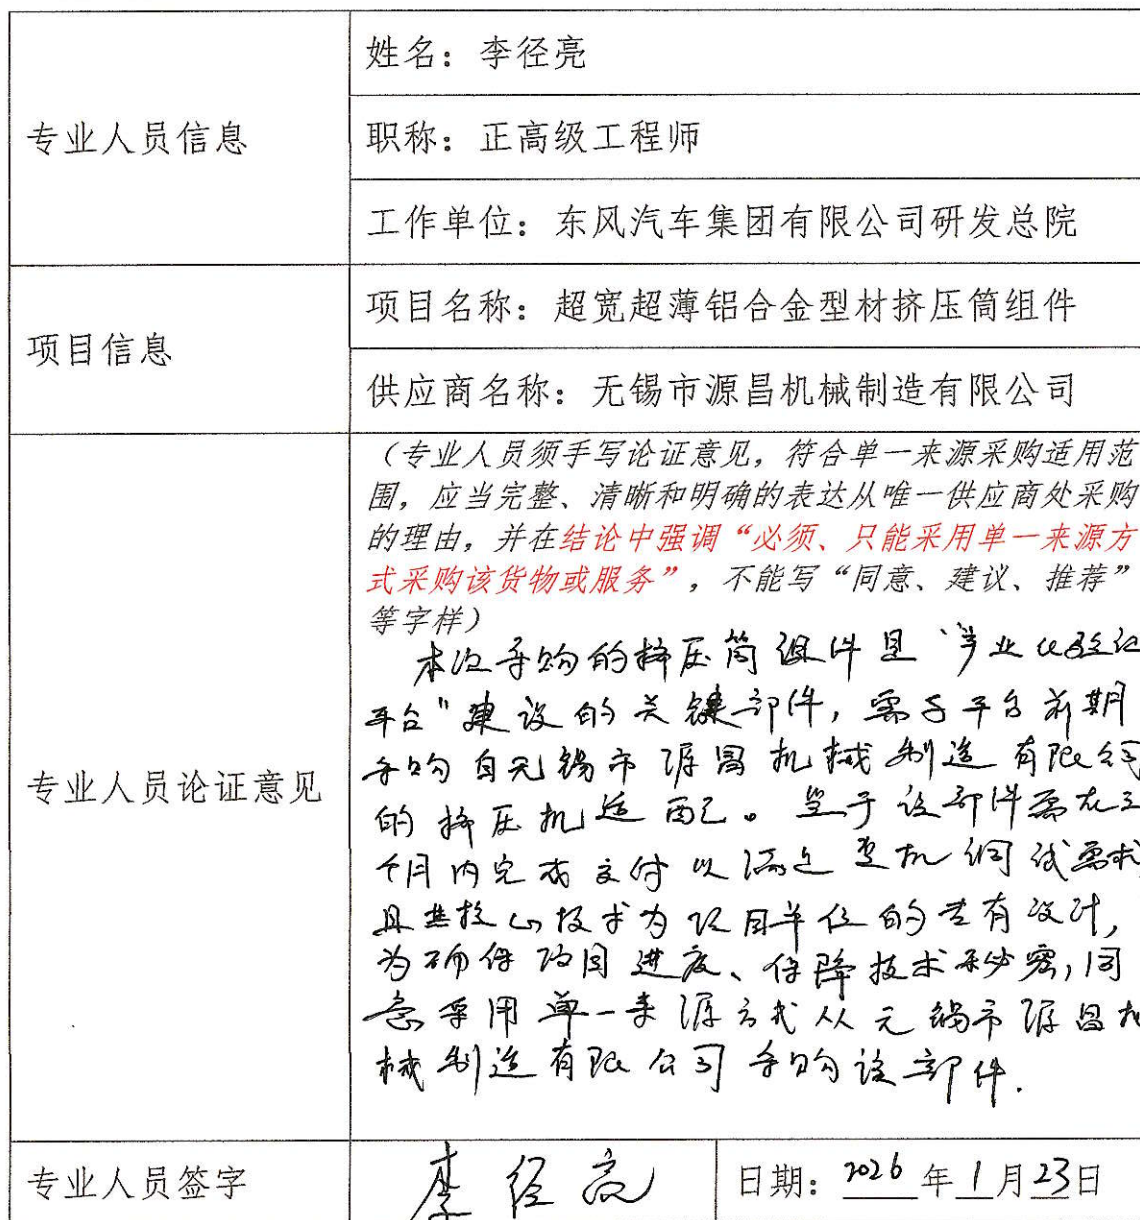 专业人员信息
姓名：李径亮
职称：正高级工程师
工作单位：东风汽车集团有限公司研发总院
项目信息
项目名称：超宽超薄铝合金型材挤压筒组件
供应商名称：无锡市源昌机械制造有限公司
专业人员论证意见
（专业人员须手写论证意见，符合单一来源采购适用范
围，应当完整、清晰和明确的表达从唯一供应商处采购
的理由，并在结论中强调“必须、只能采用单一来源方
式采购该货物或服务”，不能写“同意、建议、推荐”
等字样）
本次采购的挤压筒组件是“产业化验证
平台”建设的关键部件，需与平台前期
采购自无锡市源昌机械制造有限公司
的挤压机适配。鉴于该部件需在三
个月内完成交付以满足整机调试需求
且其核心技术为项目单位的专有设计，
为确保项目进度、保障技术秘密，同
意采用单一来源方式从无锡市源昌机
械制造有限公司采购该部件.
专业人员签字
李径亮
日期：2026年1月23日